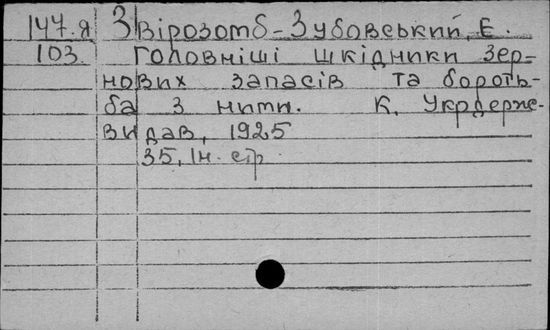 147.Я Звірозомб-Зубовський, Є.
103. Головніші шкідники зер-
нових запасів та бороть-
ба з ними. К. Укрдерж-
видав, 1925
35, Ін. стр.